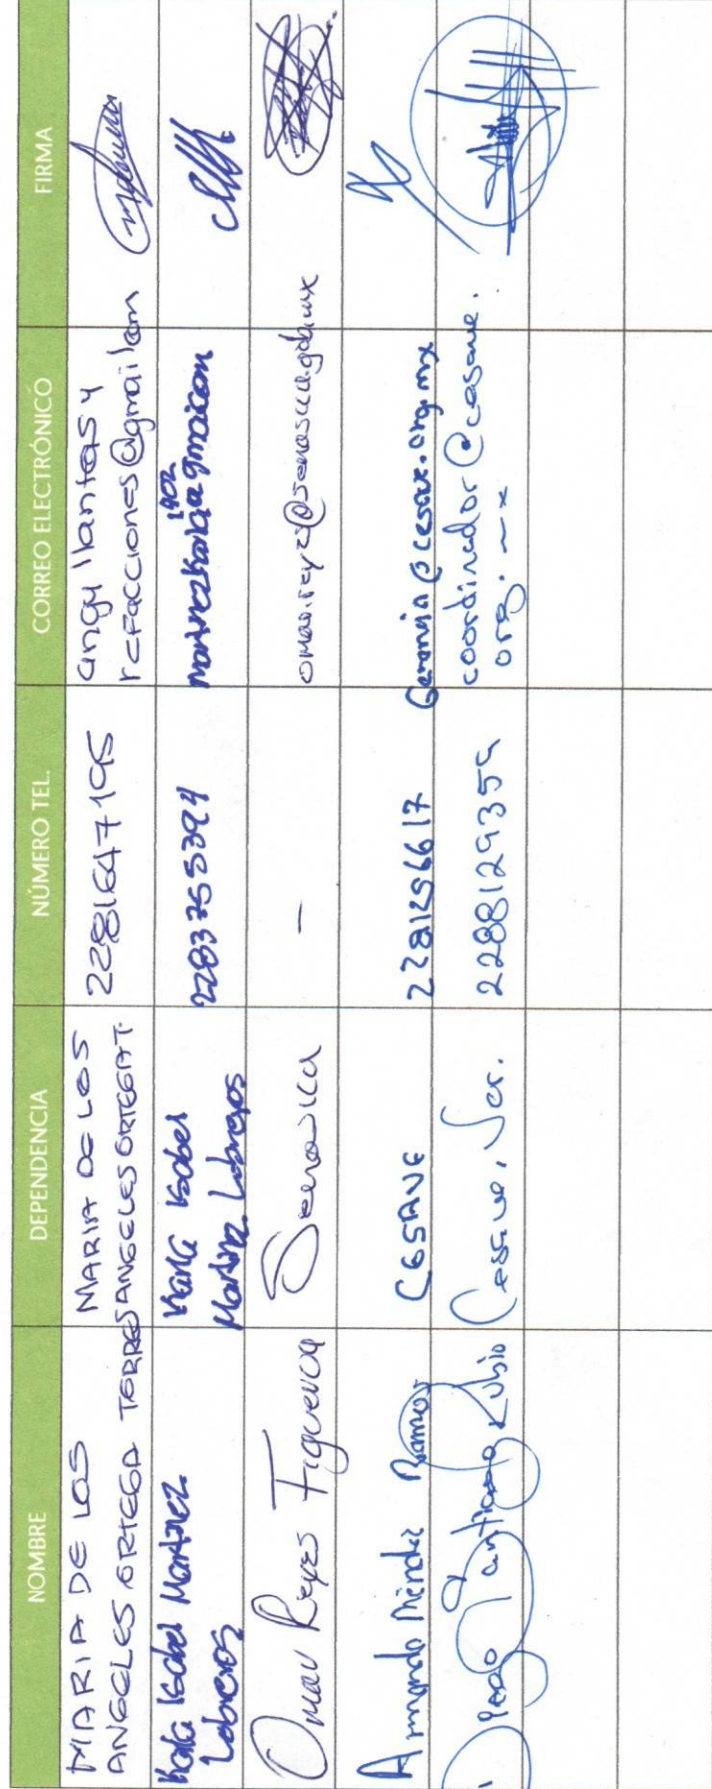 NOMBRE DEPENDENCIA NÚMERO TEL. CORREO ELECTRÓNICO FIRMA
MARIA DE LOS
ANGELES ORTEGA TORRES
MARIA DE LOS
ANGELES ORTEGA T.
2281647195
angy llantas y
refacciones@gmail.com
Karla Isabel Martínez
Lobreros
Karla Isabel
Martínez Lobreros
2283755394
Omar Reyes Figueroa
Senasica
-
Armando Méndez Ramos
CESAVE
Gerencia@cesave.org.mx
Diego Santiago Rubio
Cesave. Ver.
2288129359
coordinador@cesave.
org.mx